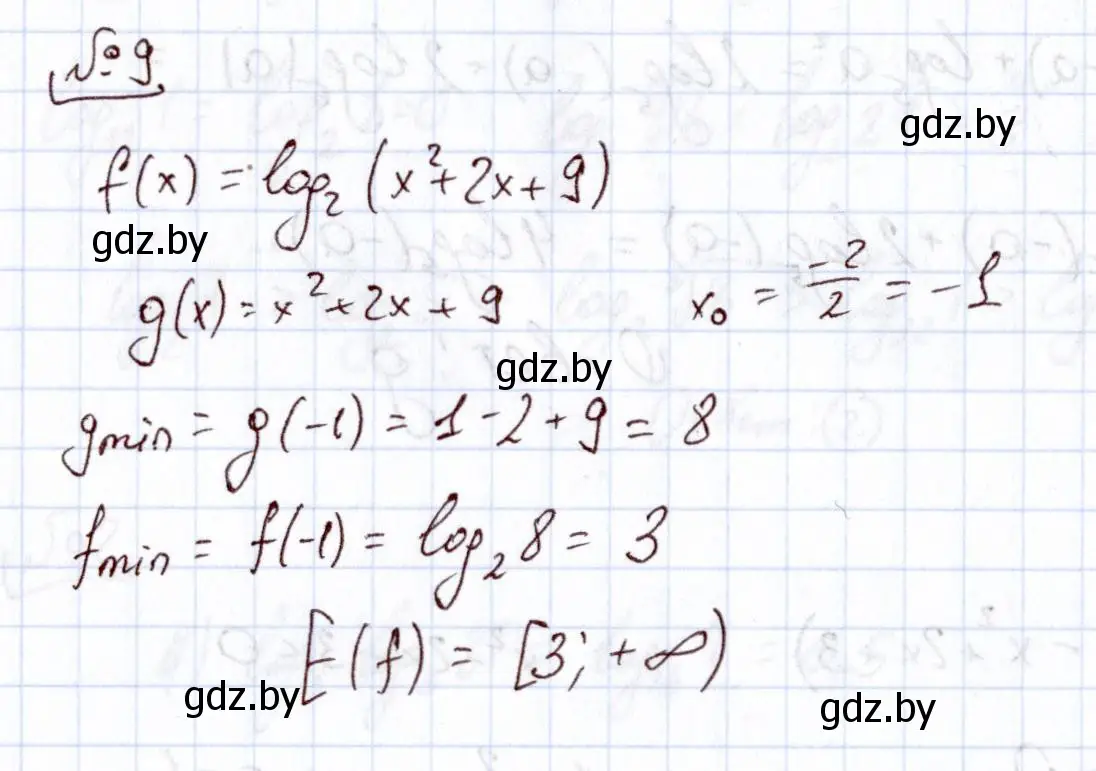 № 9
gdz.by
f(x) = log₂ (x² + 2x + 9)
gdz.by
g(x) = x² + 2x + 9 x₀ = -2/2 = -1
gdz.by
gmin = g(-1) = 1 - 2 + 9 = 8
fmin = f(-1) = log₂ 8 = 3
E(f) = [3; +∞)
gdz.by
gdz.by